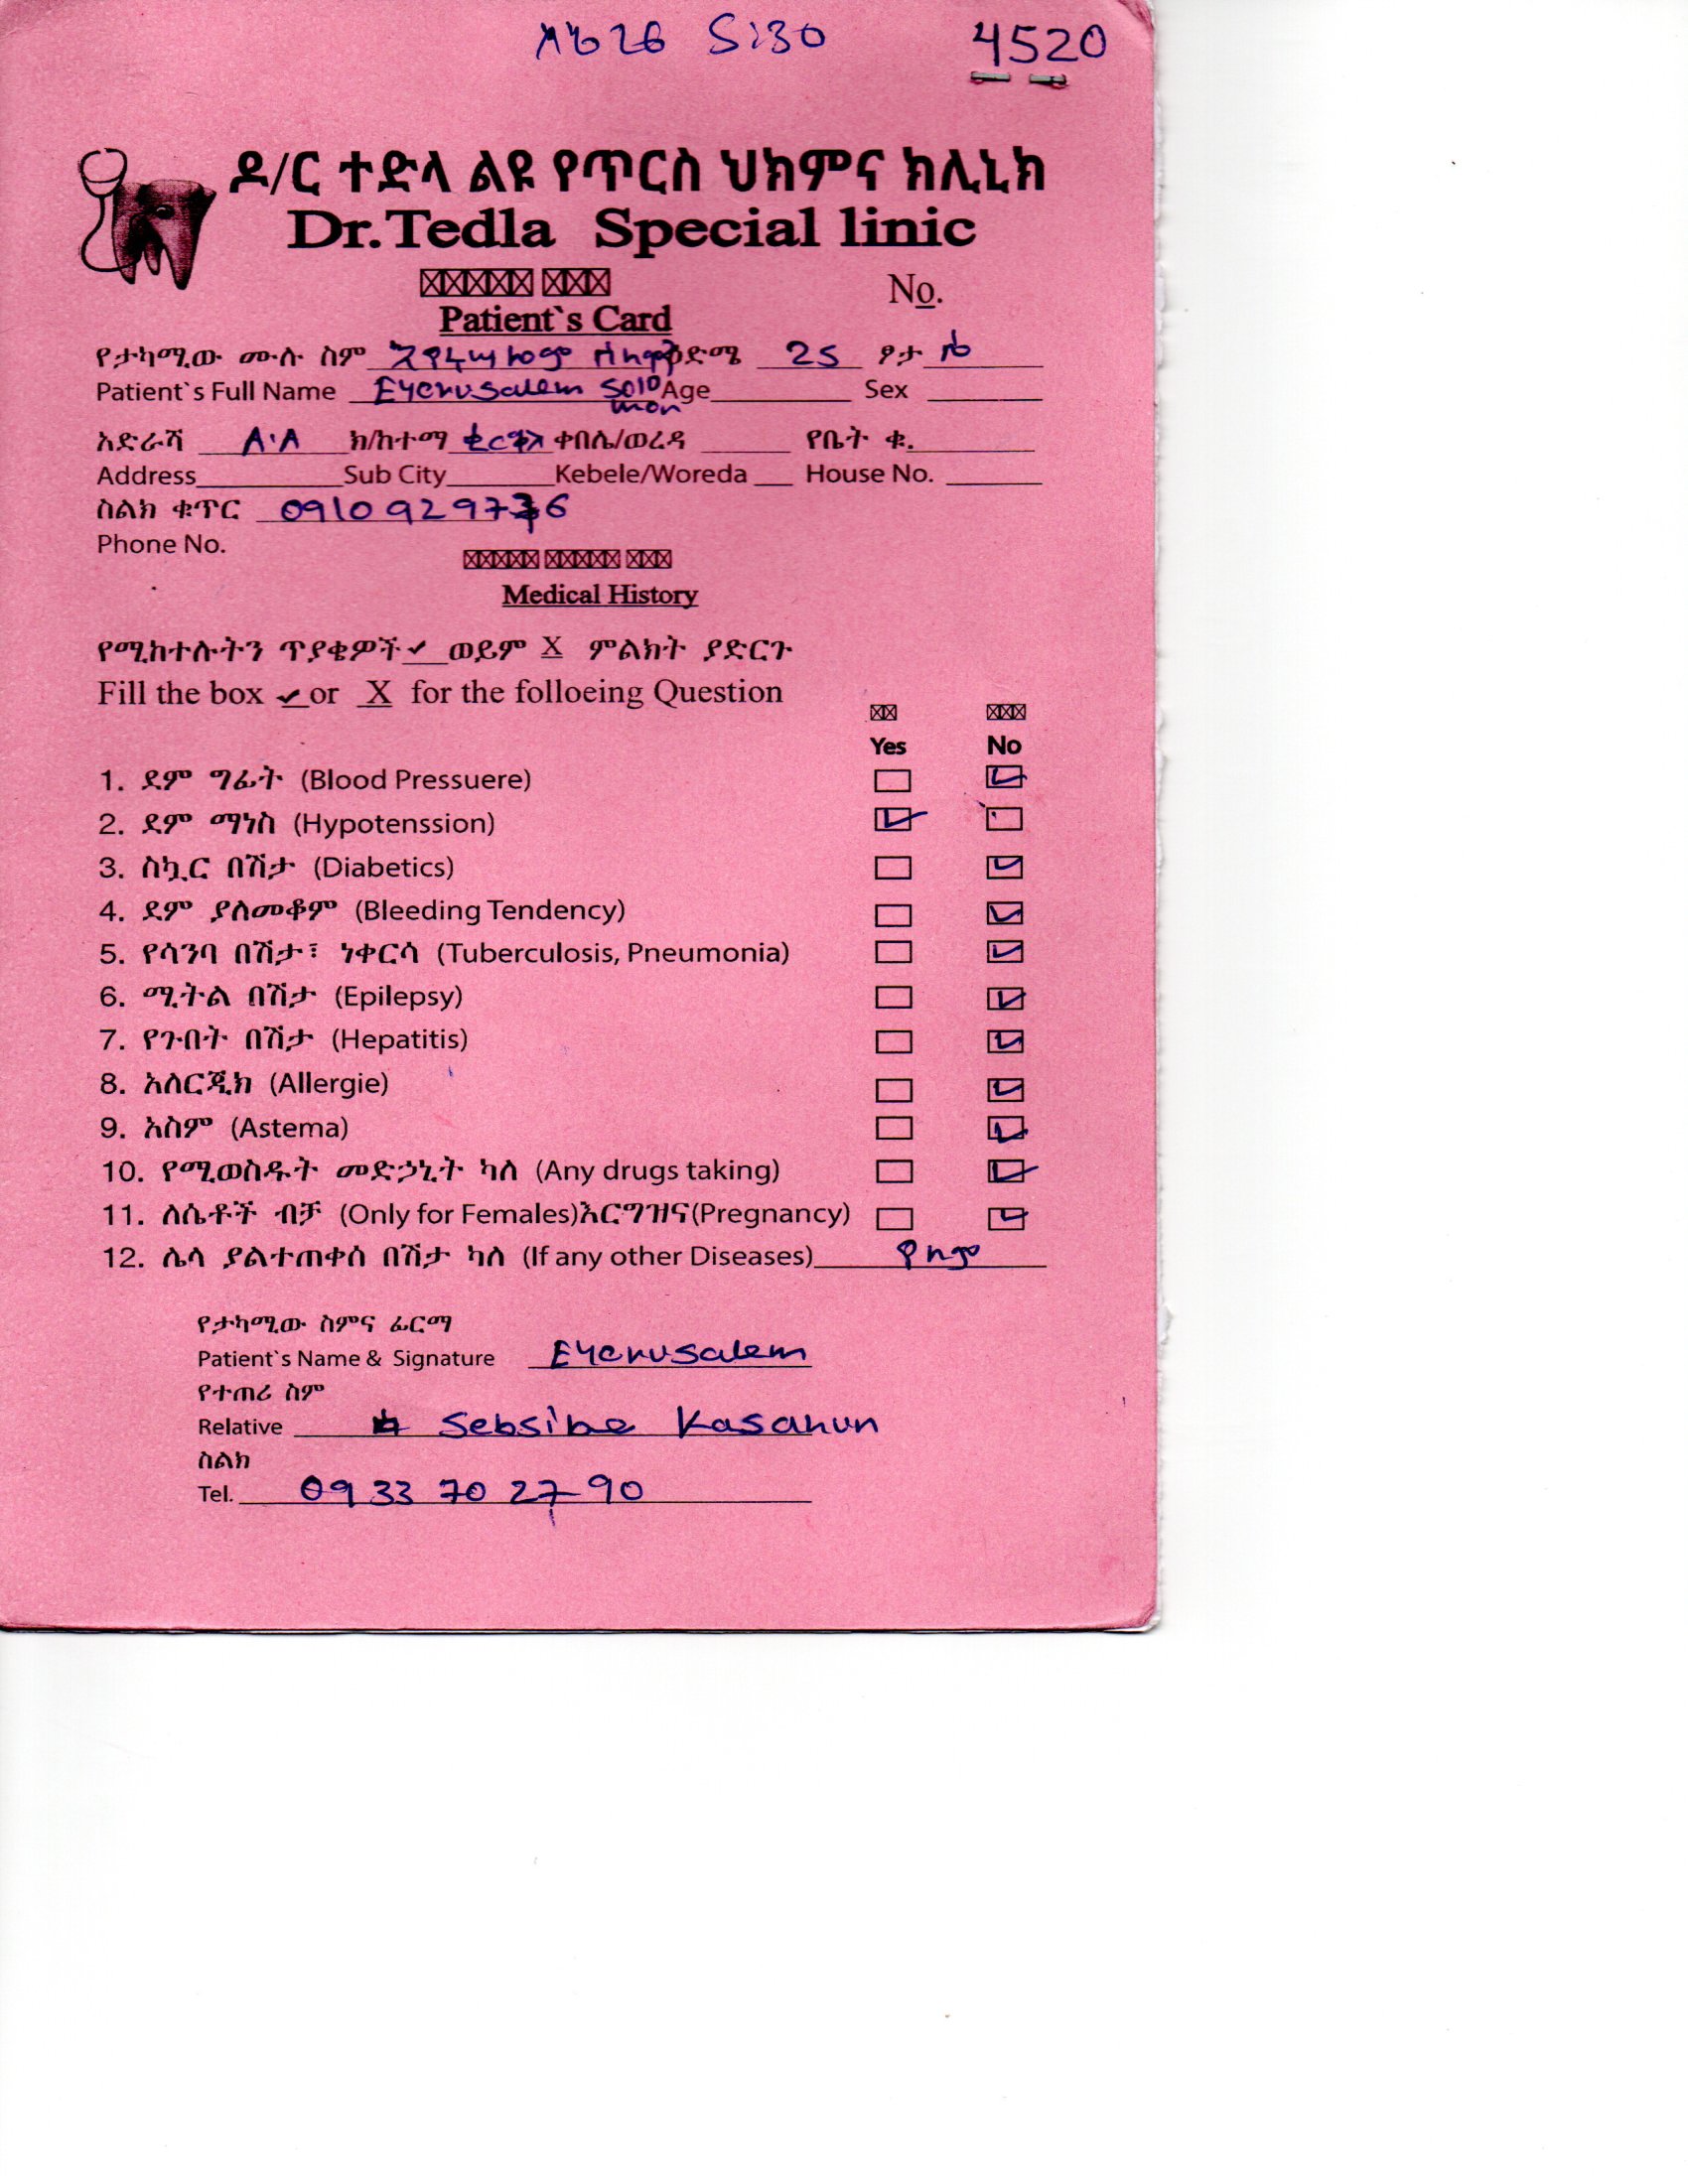 4520
ዶ/ር ተድላ ልዩ የጥርስ ህክምና ክሊኒክ
Dr.Tedla Special linic
No.
Patient`s Card
የታካሚው ሙሉ ስም እየሩሳሌም ሰለሞን ዕድሜ 25 ፆታ ሴ
Patient`s Full Name Eyerusalem Solomon Age Sex
አድራሻ A.A ክ/ከተማ ቂርቆስ ቀበሌ/ወረዳ የቤት ቁ.
Address Sub City Kebele/Woreda House No.
ስልክ ቁጥር
Phone No.
Medical History
የሚከተሉትን ጥያቄዎች ✓ ወይም X ምልክት ያድርጉ
Fill the box ✓ or X for the folloeing Question
Yes No
1. ደም ግፊት (Blood Pressuere)
2. ደም ማነስ (Hypotenssion)
3. ስኳር በሽታ (Diabetics)
4. ደም ያለመቆም (Bleeding Tendency)
5. የሳንባ በሽታ፣ ነቀርሳ (Tuberculosis, Pneumonia)
6. ሚትል በሽታ (Epilepsy)
7. የጉበት በሽታ (Hepatitis)
8. አለርጂክ (Allergie)
9. አስም (Astema)
10. የሚወስዱት መድኃኒት ካለ (Any drugs taking)
11. ለሴቶች ብቻ (Only for Females)እርግዝና(Pregnancy)
12. ሌላ ያልተጠቀሰ በሽታ ካለ (If any other Diseases) የለም
የታካሚው ስምና ፊርማ
Patient`s Name & Signature Eyerusalem
የተጠሪ ስም
Relative Sebsibe Kasahun
ስልክ
Tel. 09 33 70 27 90